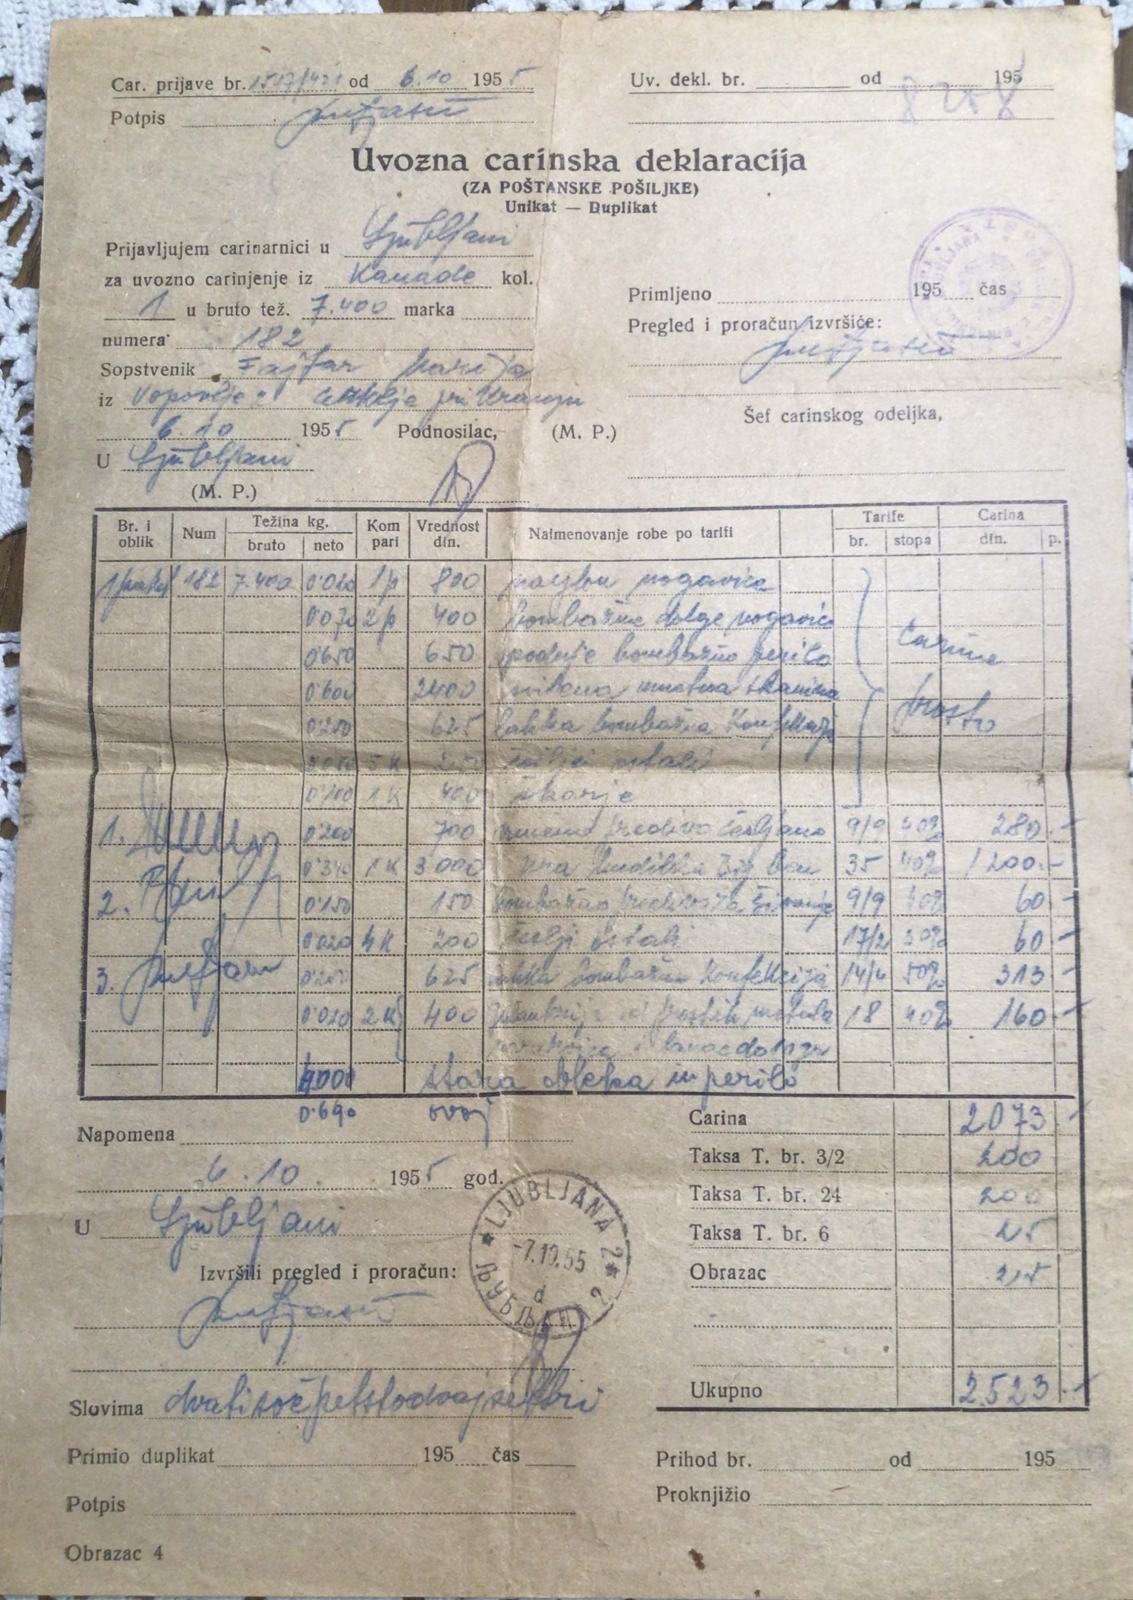 Car. prijave br. od 6.10 1955
Uv. dekl. br. od 195
8208
Potpis
Uvozna carinska deklaracija
(ZA POŠTANSKE POŠILJKE)
Unikat — Duplikat
Prijavljujem carinarnici u Ljubljani
za uvozno carinjenje iz Kanade kol.
1 u bruto tež. 7.400 marka
numera 182
Sopstvenik Fajfar Marija
iz Vopovlje pri Kranju
6.10 1955 Podnosilac, (M. P.)
U Ljubljani
(M. P.)
Primljeno 195 čas
Pregled i proračun izvršiće:
Šef carinskog odeljka,
Br. i oblik Num Težina kg. bruto neto Kom pari Vrednost din. Naimenovanje robe po tarifi Tarife br. stopa Carina din. p.
182 7.400 0'020 1 p 800 nogavice
0'070 2 p 400 bombažne dolge nogavice
0'650 650 spodnje bombažno perilo
0'600 2400 svilena umetna tkanina
0'250 625 lahka bombažna konfekcija
5 K ostali
0'100 1 K 400 škarje
carine
prosto
1. 0'200 700 predivo česljano 9/9 40% 280.-
1 K 3.000 ura budilka Big Ben 35 40% 1200.-
2. 0'150 150 bombažno predivo za šivanje 9/9 40% 60.-
0'020 4 K 200 ostali 17/2 30% 60.-
3. 625 lahka bombažna konfekcija 14/4 50% 313.-
2 K 400 galanterija od prostih metala 18 40% 160.-
4000 stara obleka in perilo
0'690 ovoj
Napomena
6.10. 1955 god.
U Ljubljani
Izvršili pregled i proračun:
LJUBLJANA 2
-7.10.55
d
ЉУБЉАНА 2
Carina 2073.-
Taksa T. br. 3/2 200
Taksa T. br. 24 200
Taksa T. br. 6 25
Obrazac 25
Ukupno 2.523.-
Slovima dvatisočpetstodvajsettri
Primio duplikat 195 čas
Potpis
Prihod br. od 195
Proknjižio
Obrazac 4